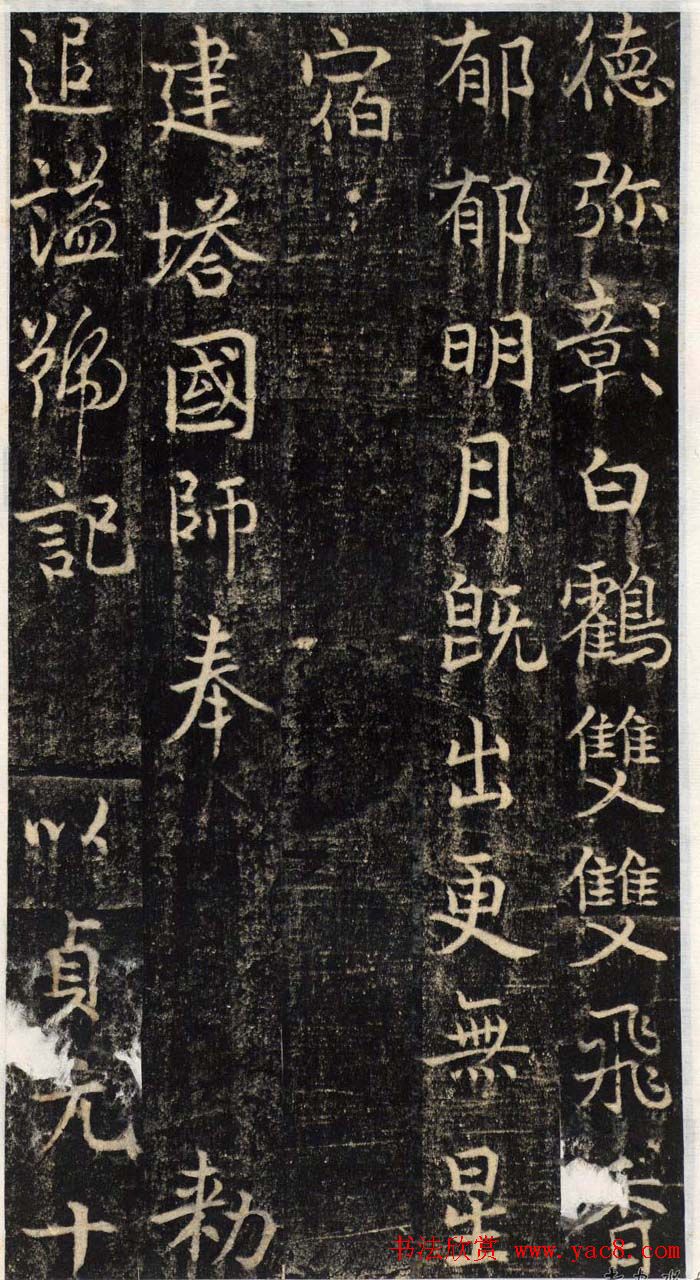 德弥彰白鸖雙雙飛香
郁郁明月旣出更無星
宿
建塔國師奉　勑
追謚號記　以貞元十
书法欣赏 www.yac8.com